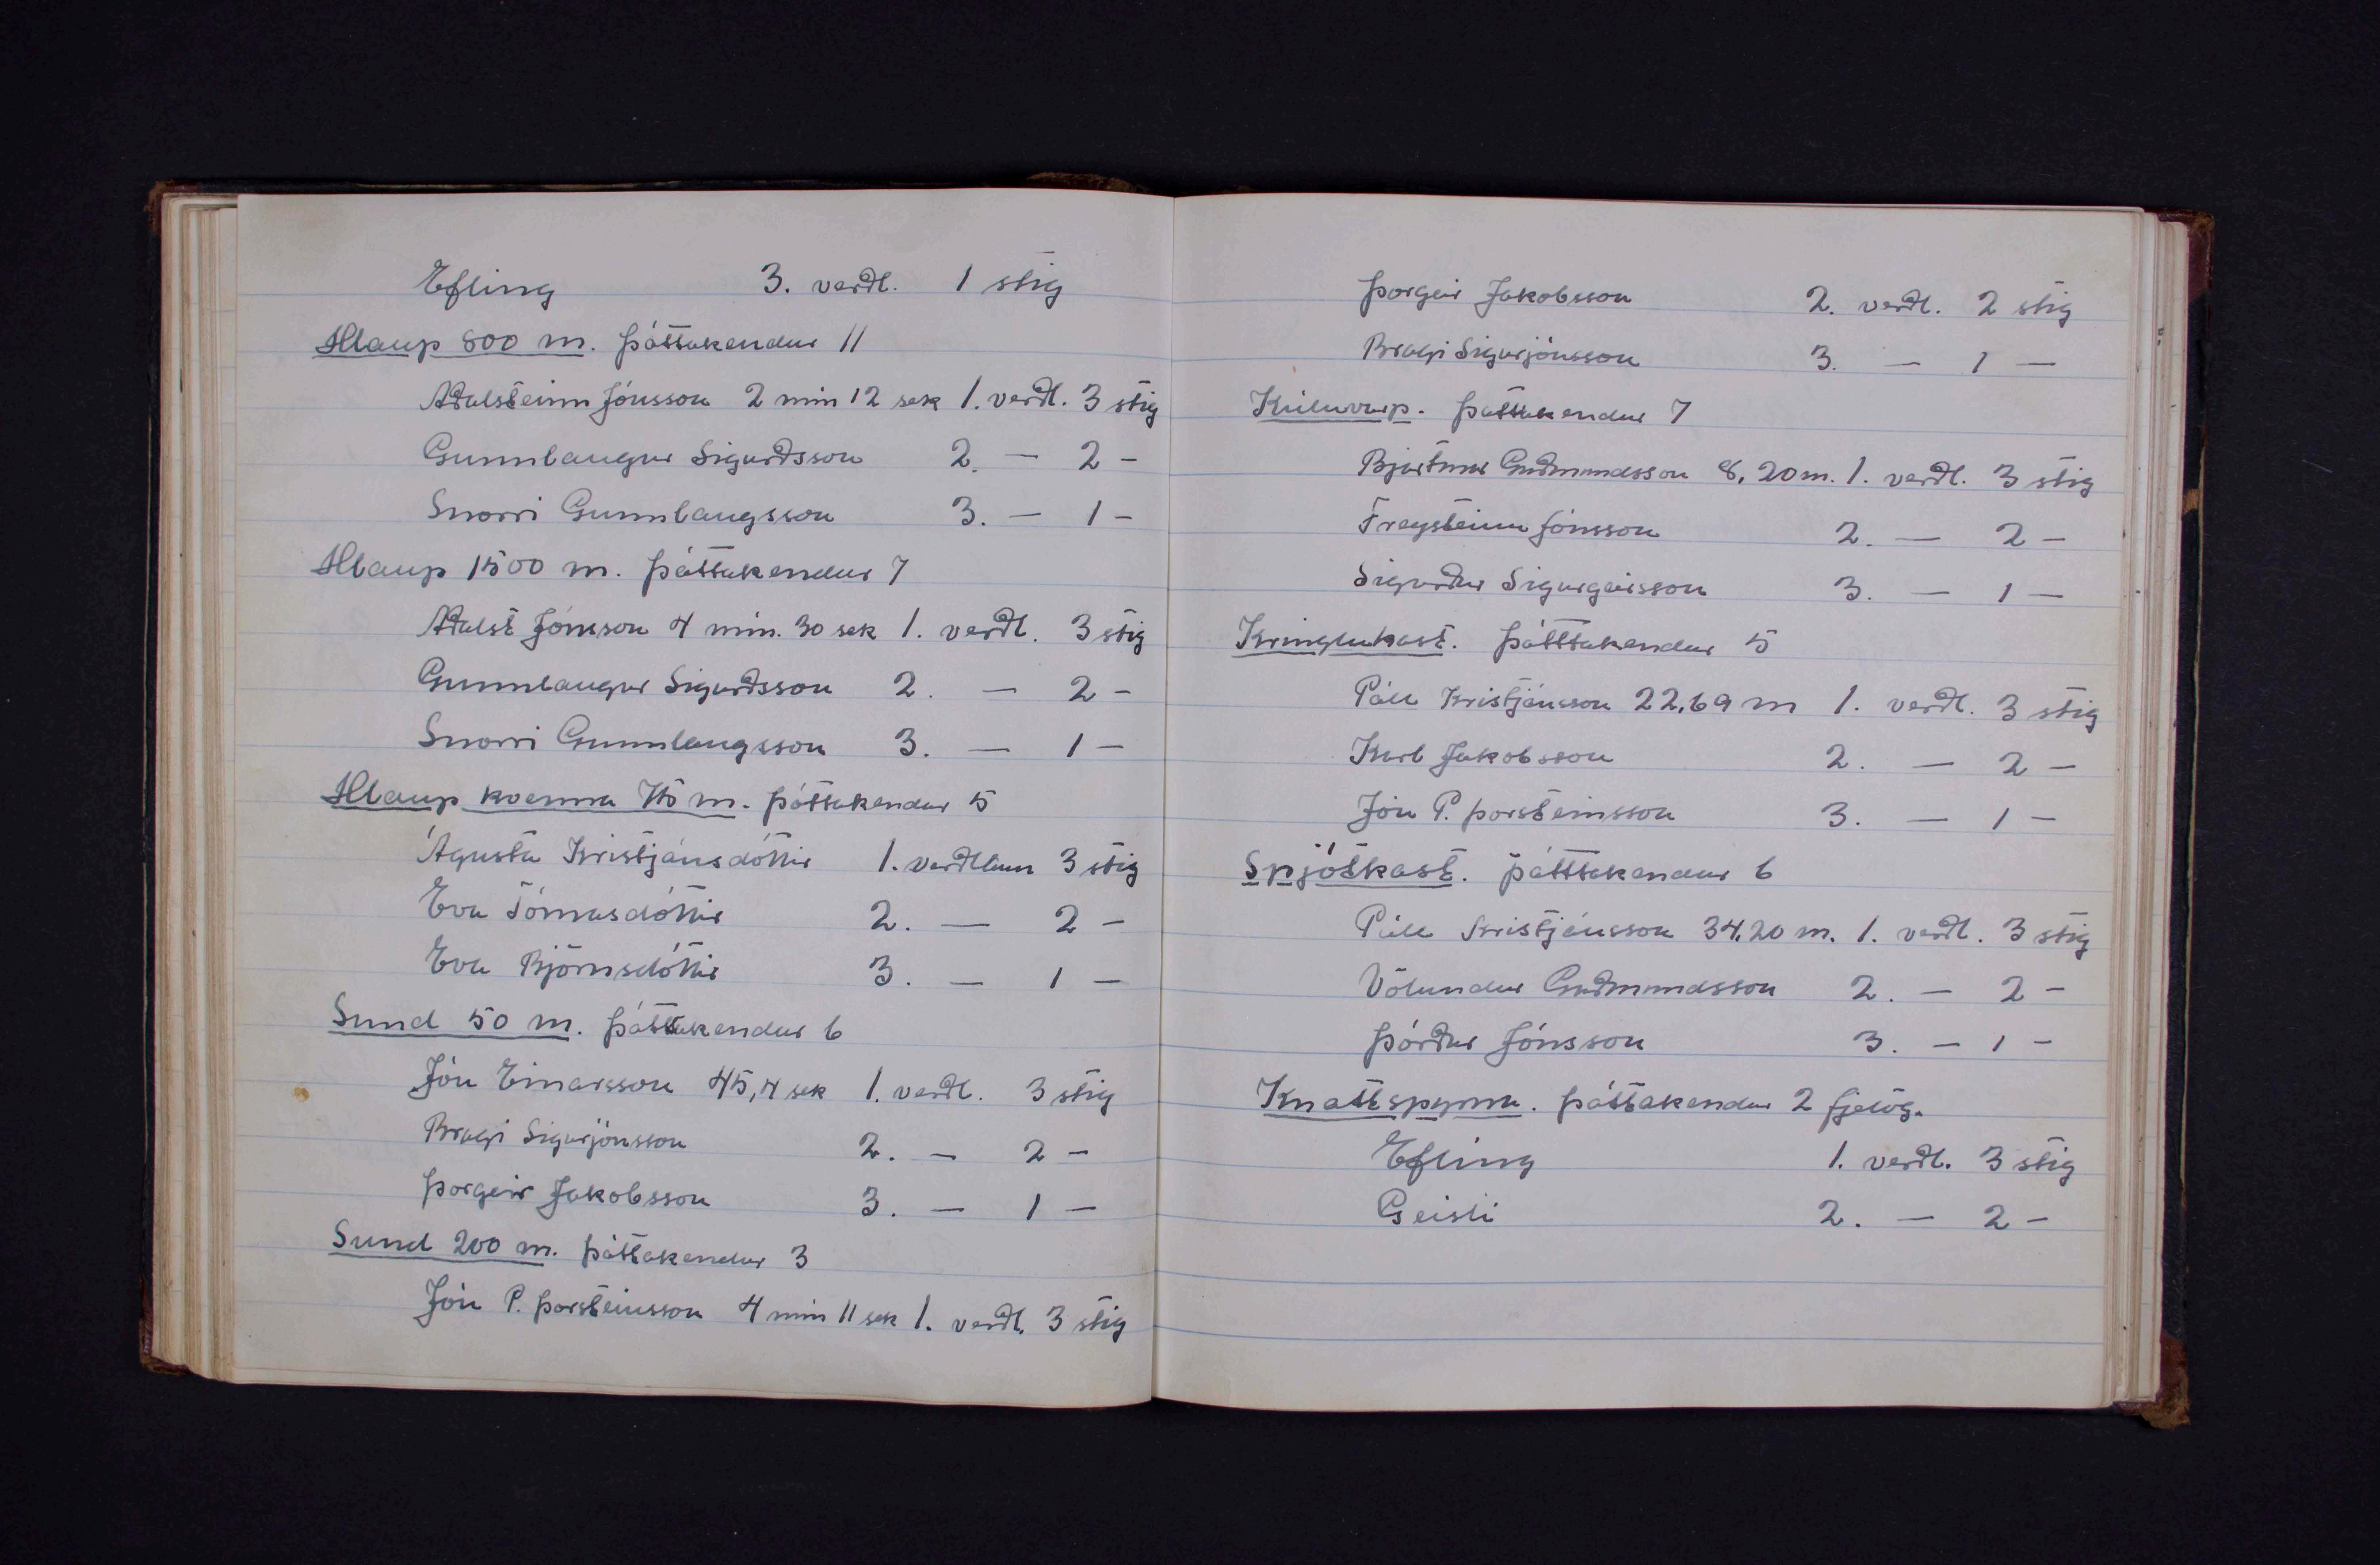 Efling 3. verðl. 1 stig
Hlaup 800 m. Þátttakendur 11
Aðalsteinn Jónsson 2 min 12 sek 1. verðl. 3 stig
Gunnlaugur Sigurðsson 2. — 2 -
Snorri Gunnlaugsson 3. — 1 -
Hlaup 1500 m. Þátttakendur 7
Aðalst Jónsson 4 min. 30 sek 1. verðl. 3 stig
Gunnlaugur Sigurðsson 2. — 2 -
Snorri Gunnlaugsson 3. — 1 -
Hlaup kvenna 75 m. Þátttakendur 5
Ágústa Kristjánsdóttir 1. verðlaun 3 stig
Eva Tómasdóttir 2. — 2 -
Eva Björnsdóttir 3. — 1 —
Sund 50 m. Þátttakendur 6
Jón Einarsson 45,4 sek 1. verðl. 3 stig
Bragi Sigurjónsson 2. — 2 -
Þorgeir Jakobsson 3. — 1 —
Sund 200 m. Þátttakendur 3
Jón P. Þorsteinsson 4 min 11 sek 1. verðl. 3 stig
Þorgeir Jakobsson 2. verðl. 2 stig
Bragi Sigurjónsson 3. — 1 —
Kúluvarp. Þátttakendur 7
Bjartmar Guðmundsson 8,20 m. 1. verðl. 3 stig
Freysteinn Jónsson 2. — 2 -
Sigurður Sigurgeirsson 3. — 1 —
Kringlukast. Þátttakendur 5
Páll Kristjánsson 22,69 m 1. verðl. 3 stig
Karl Jakobsson 2. — 2 -
Jón P. Þorsteinsson 3. — 1 -
Spjótkast. Þátttakendur 6
Páll Kristjánsson 34,20 m. 1. verðl. 3 stig
Völundur Guðmundsson 2. — 2 -
Þórður Jónsson 3. — 1 -
Knattspyrna. Þátttakendur 2 fjelög.
Efling 1. verðl. 3 stig
Geisli 2. — 2 -